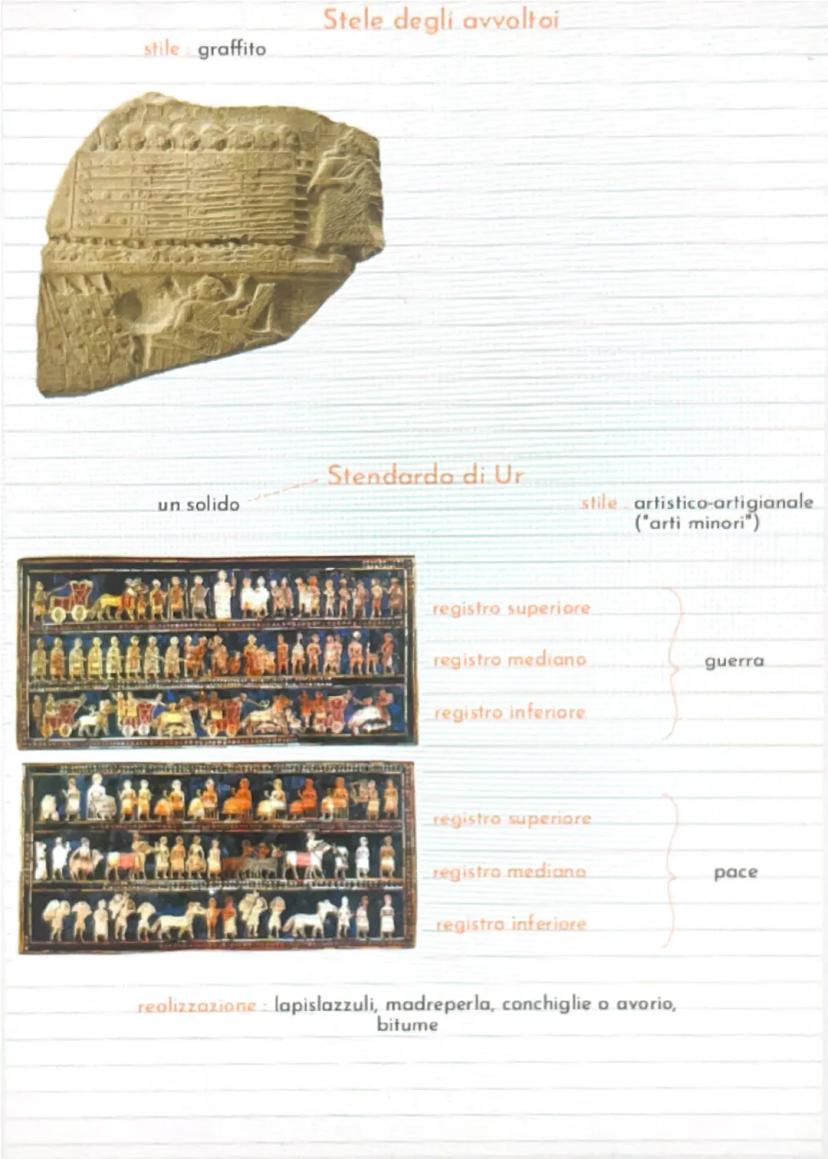 Stele degli avvoltoi
stile : graffito
Stendardo di Ur
un solido
stile : artistico-artigianale
("arti minori")
registro superiore
registro mediano
guerra
registro inferiore
registro superiore
registro mediano
pace
registro inferiore
realizzazione : lapislazzuli, madreperla, conchiglie o avorio,
bitume